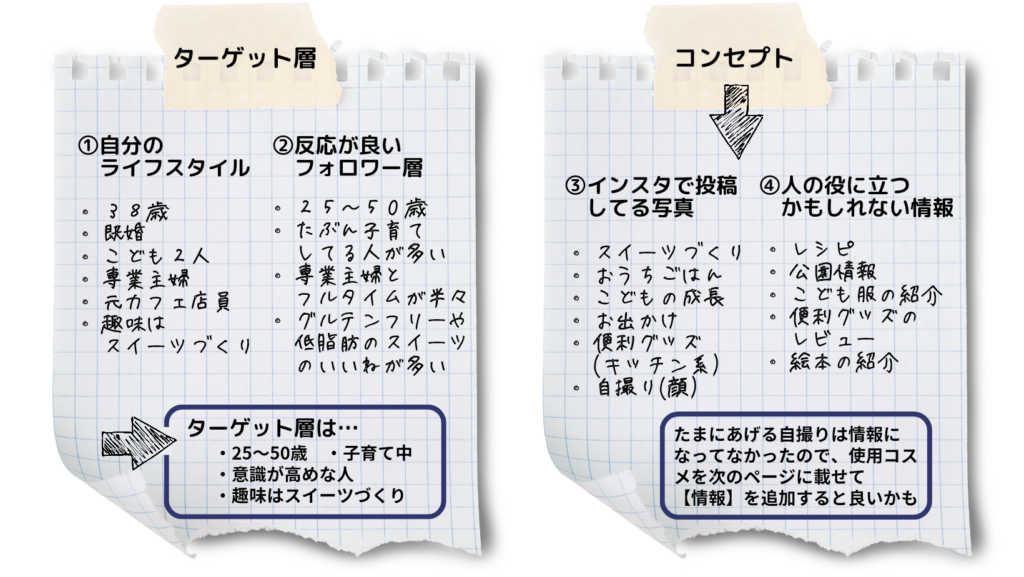 ターゲット層
①自分の
ライフスタイル
・38歳
・既婚
・こども2人
・専業主婦
・元カフェ店員
・趣味は
スイーツづくり
②反応が良い
フォロワー層
・25〜50歳
・たぶん子育て
してる人が多い
・専業主婦と
フルタイムが半々
・グルテンフリーや
低脂肪のスイーツ
のいいねが多い
ターゲット層は…
・25〜50歳 ・子育て中
・意識が高めな人
・趣味はスイーツづくり
コンセプト
③インスタで投稿
してる写真
・スイーツづくり
・おうちごはん
・こどもの成長
・お出かけ
・便利グッズ
(キッチン系)
・自撮り(顔)
④人の役に立つ
かもしれない情報
・レシピ
・公園情報
・こども服の紹介
・便利グッズの
レビュー
・絵本の紹介
たまにあげる自撮りは情報に
なってなかったので、使用コス
メを次のページに載せて
【情報】を追加すると良いかも